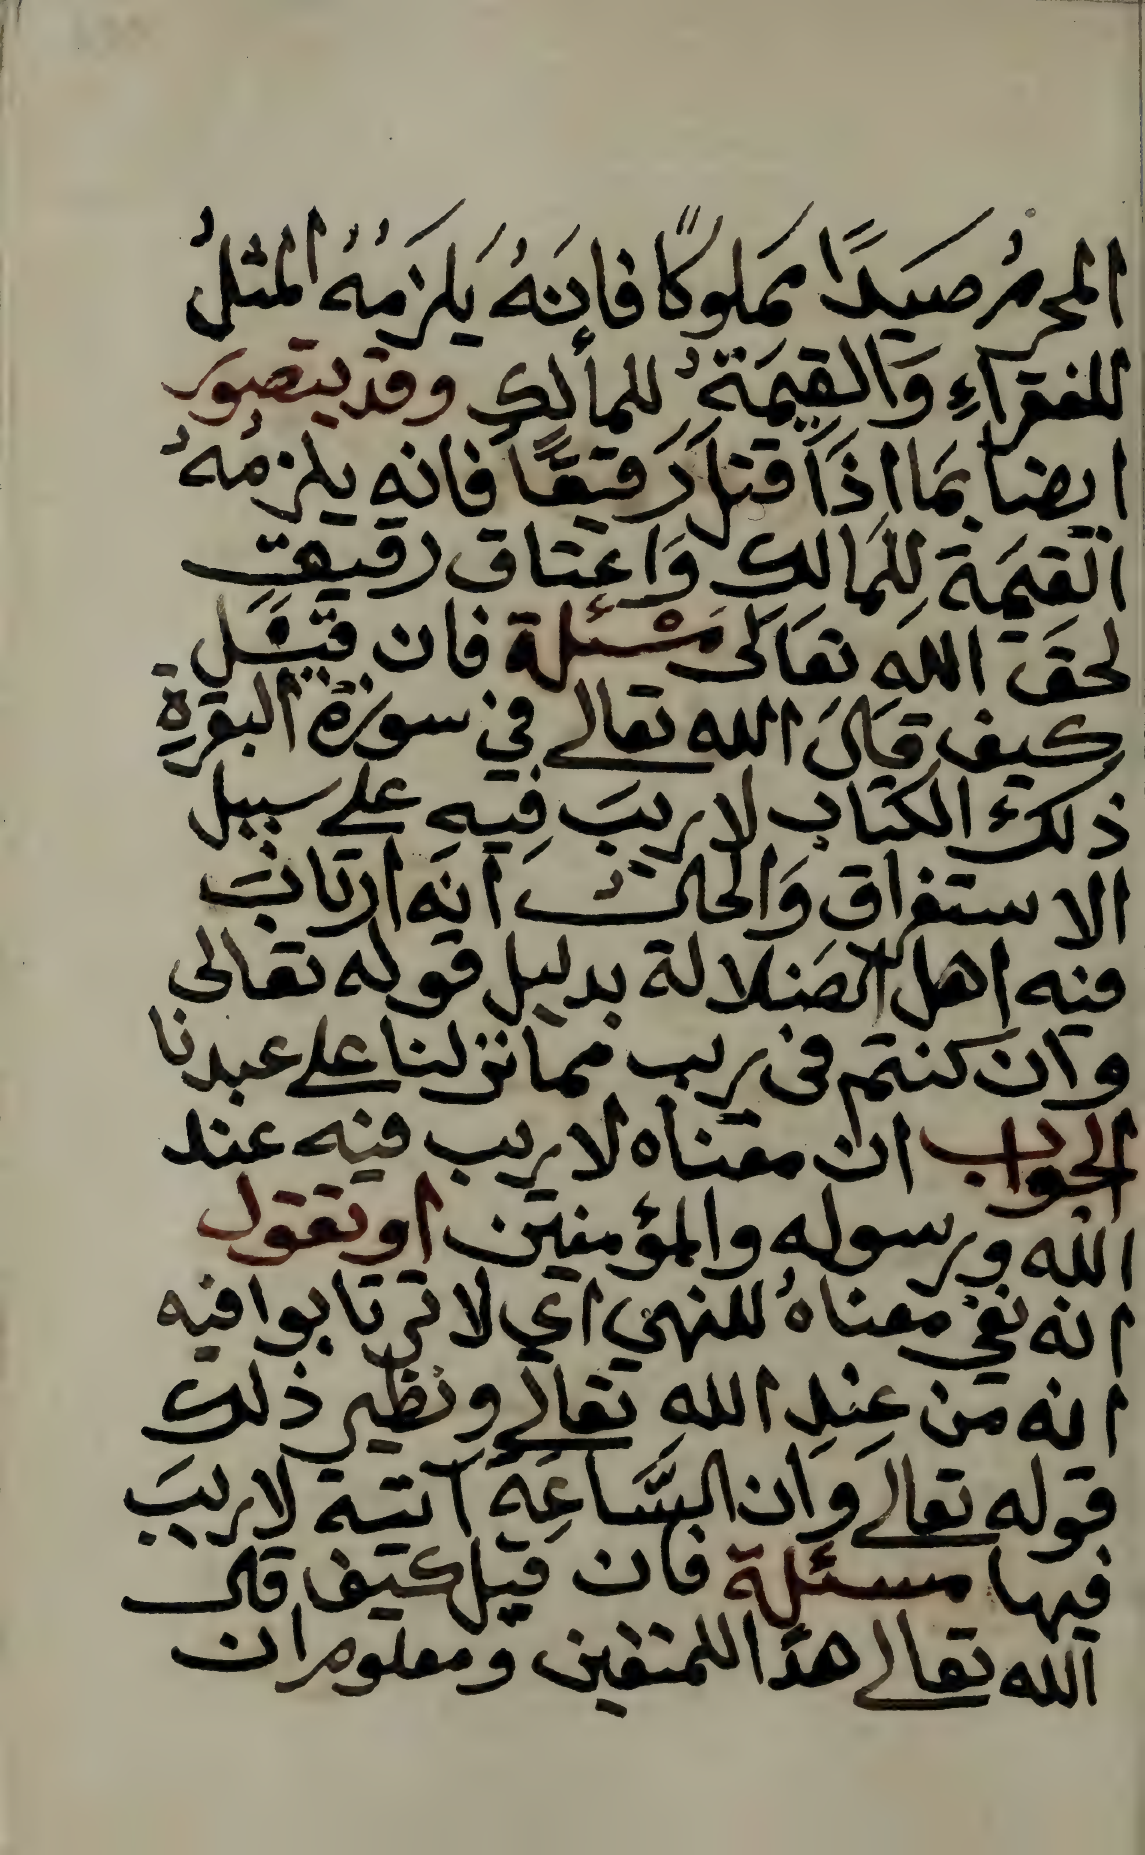 المحرمُ صَيدًا مملوكًا فانَهُ يَلزَمُهُ المثلُ
للفقرآءِ وَالقِيمَةُ للمالكِ وقد يتصور
ايضا بمَا اذَا قتل رَقيقًا فانه يلزمُهُ
القيمَة لِلمَالك وَاعتاق رقيق
لحقَ اللهَ تعَالَى مسْئلة فان قيَل
كيف قَالَ الله تعالى في سورة البقرةِ
ذلك الكتاب لا ريبَ فِيهِ على سبيل
الاستغراق وَالحالُ انَه ارتابَ
فيه اهل الضَلالة بدليل قوله تعالى
وان كنتم في ريب مما نزلنا على عبدنا
الجواب ان معناه لا ريب فيه عند
الله ورسوله والمؤمنين او نقول
انه نفي معناهُ للنهي اي لا ترتابوا فيه
انه من عِندِ الله تعالى ونظير ذلك
قوله تعالى وَان السَّاعِة آتية لا ريبَ
فيها مسئلة فان قيل كيف قال
الله تعالى هدًا للمتقين ومعلوم ان